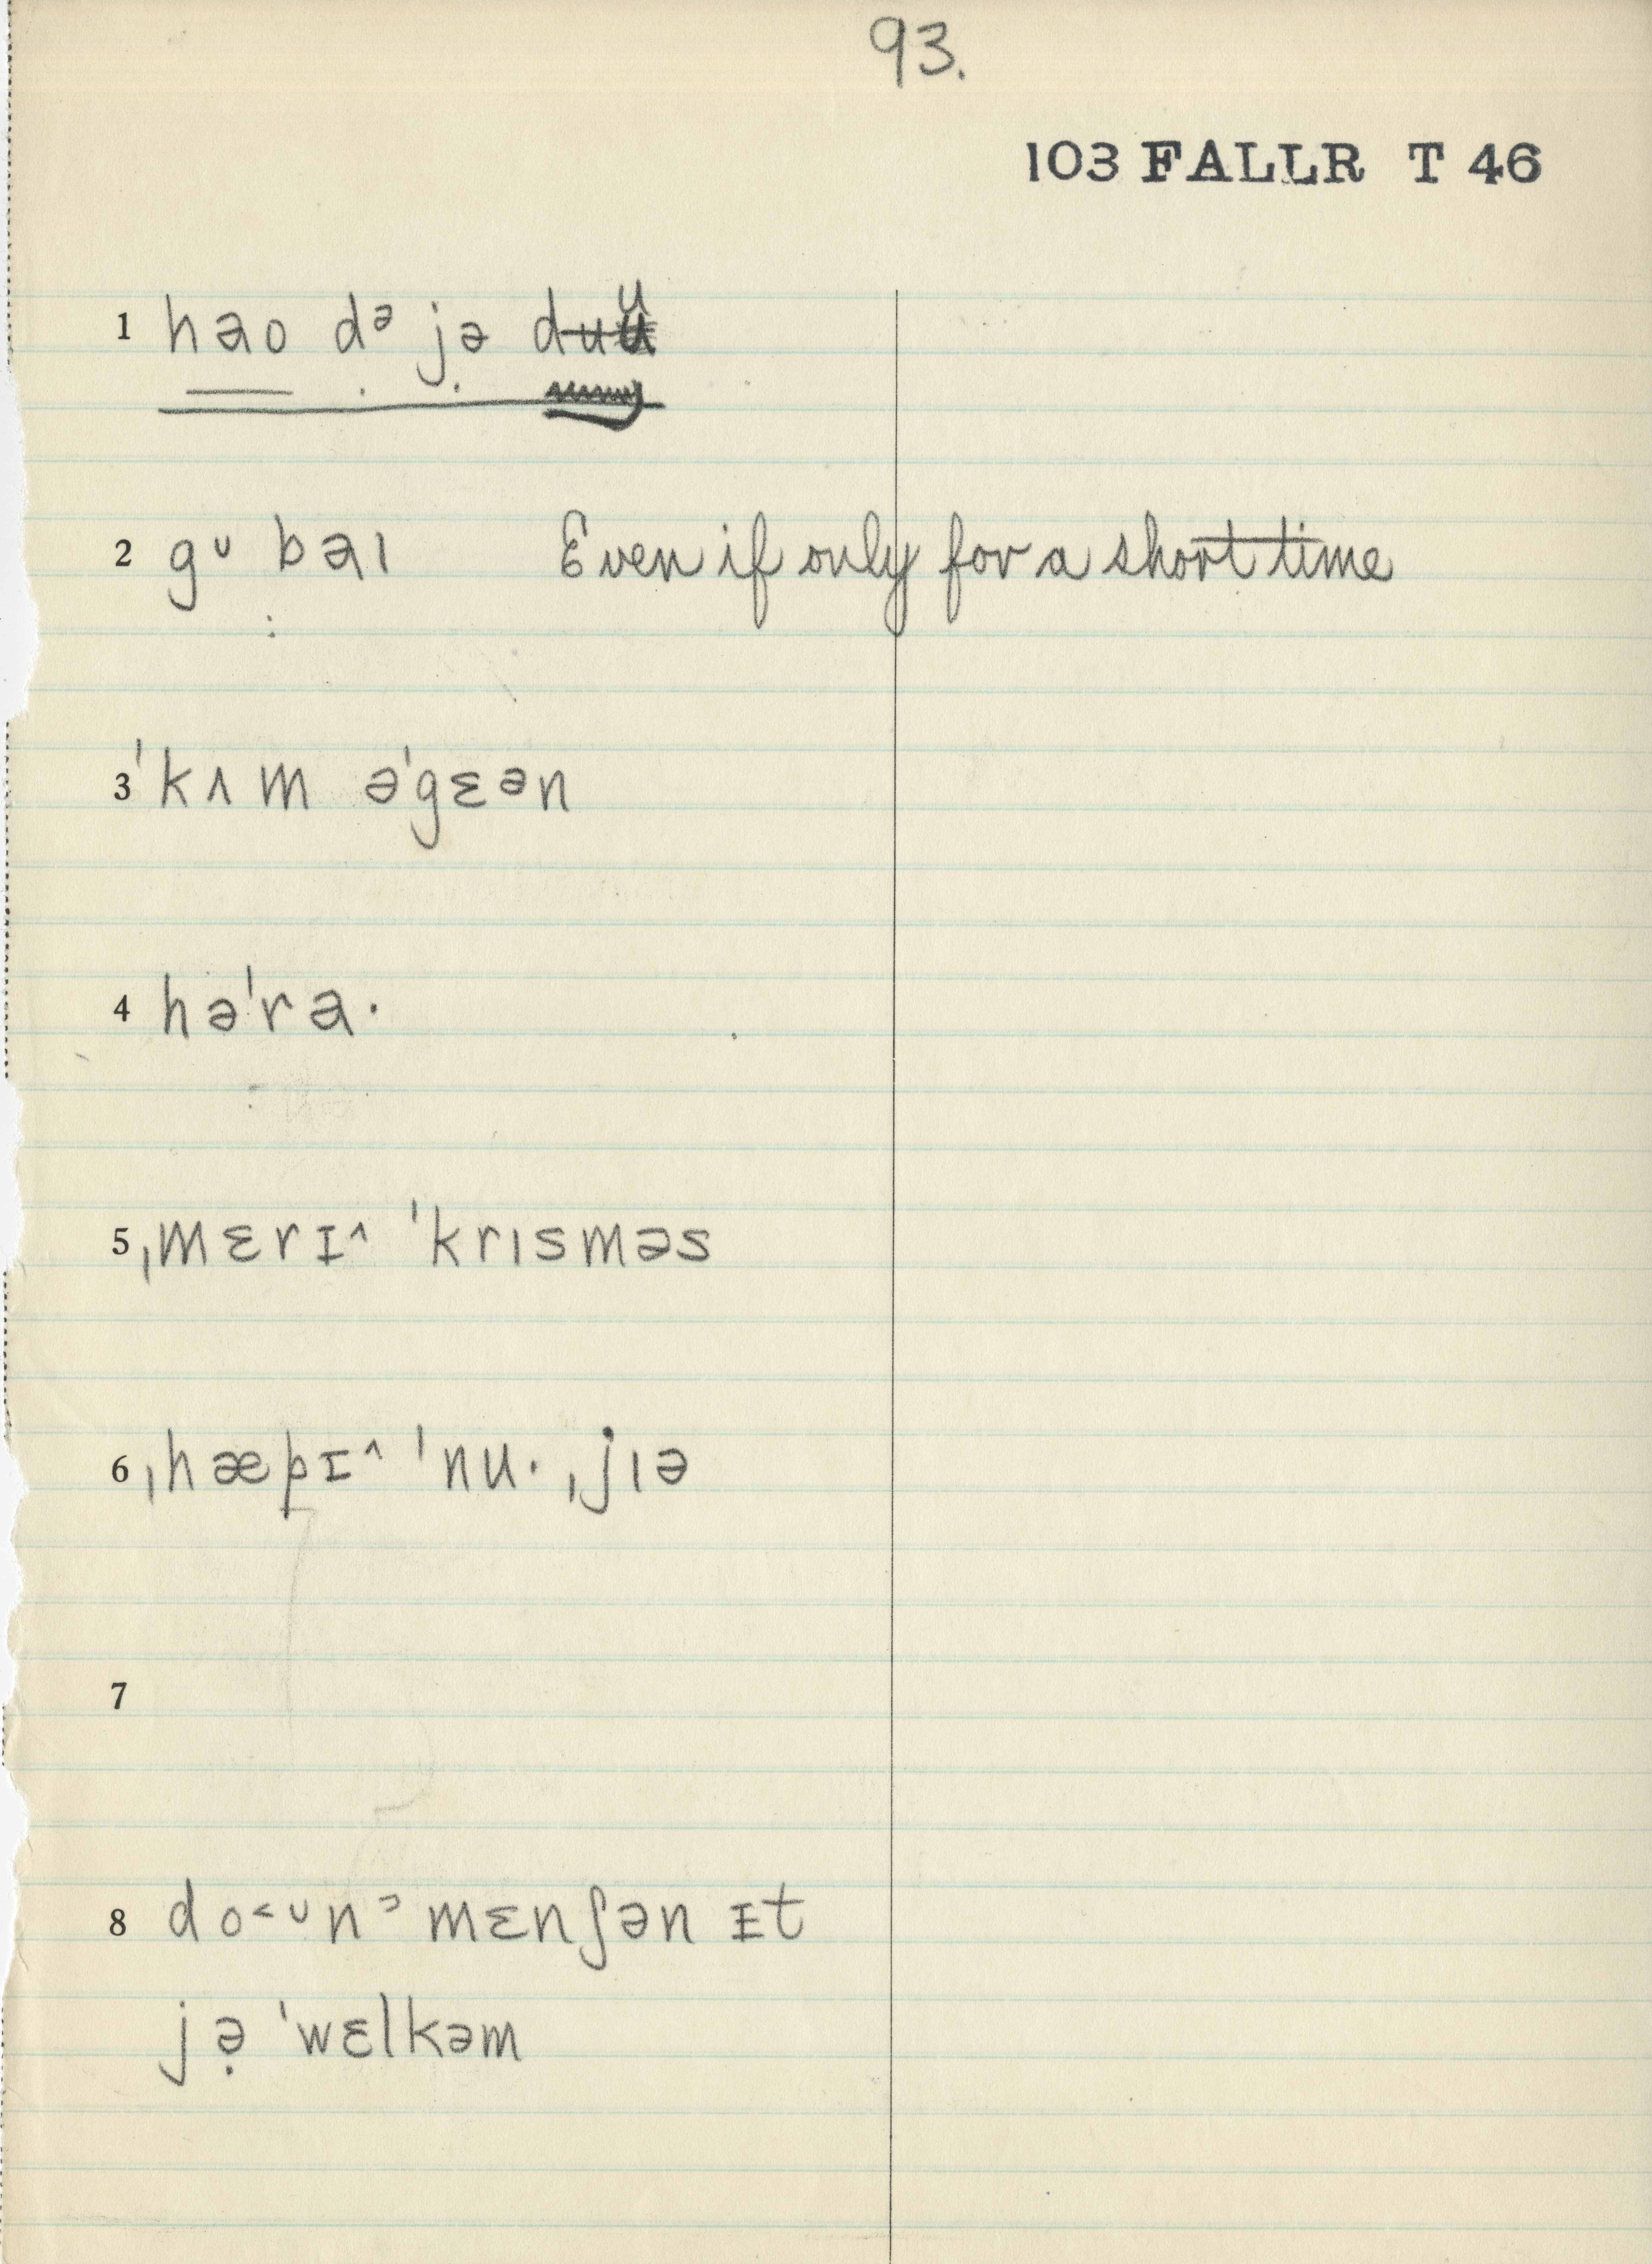 93.
103 FALLR T 46
1 hao dᵊ jə duu
2 gᶷ baɪ Even if only for a short time
3 ˈkʌm əˈgɛᵊn
4 həˈra·
5 ˌmɛrɪ^ ˈkrɪsməs
6 ˌhæpɪ^ ˈnu· ˌjɪə
7
8 do˂ᶷnᵓ mɛnʃən ɪt
jə̣ ˈwɛlkəm